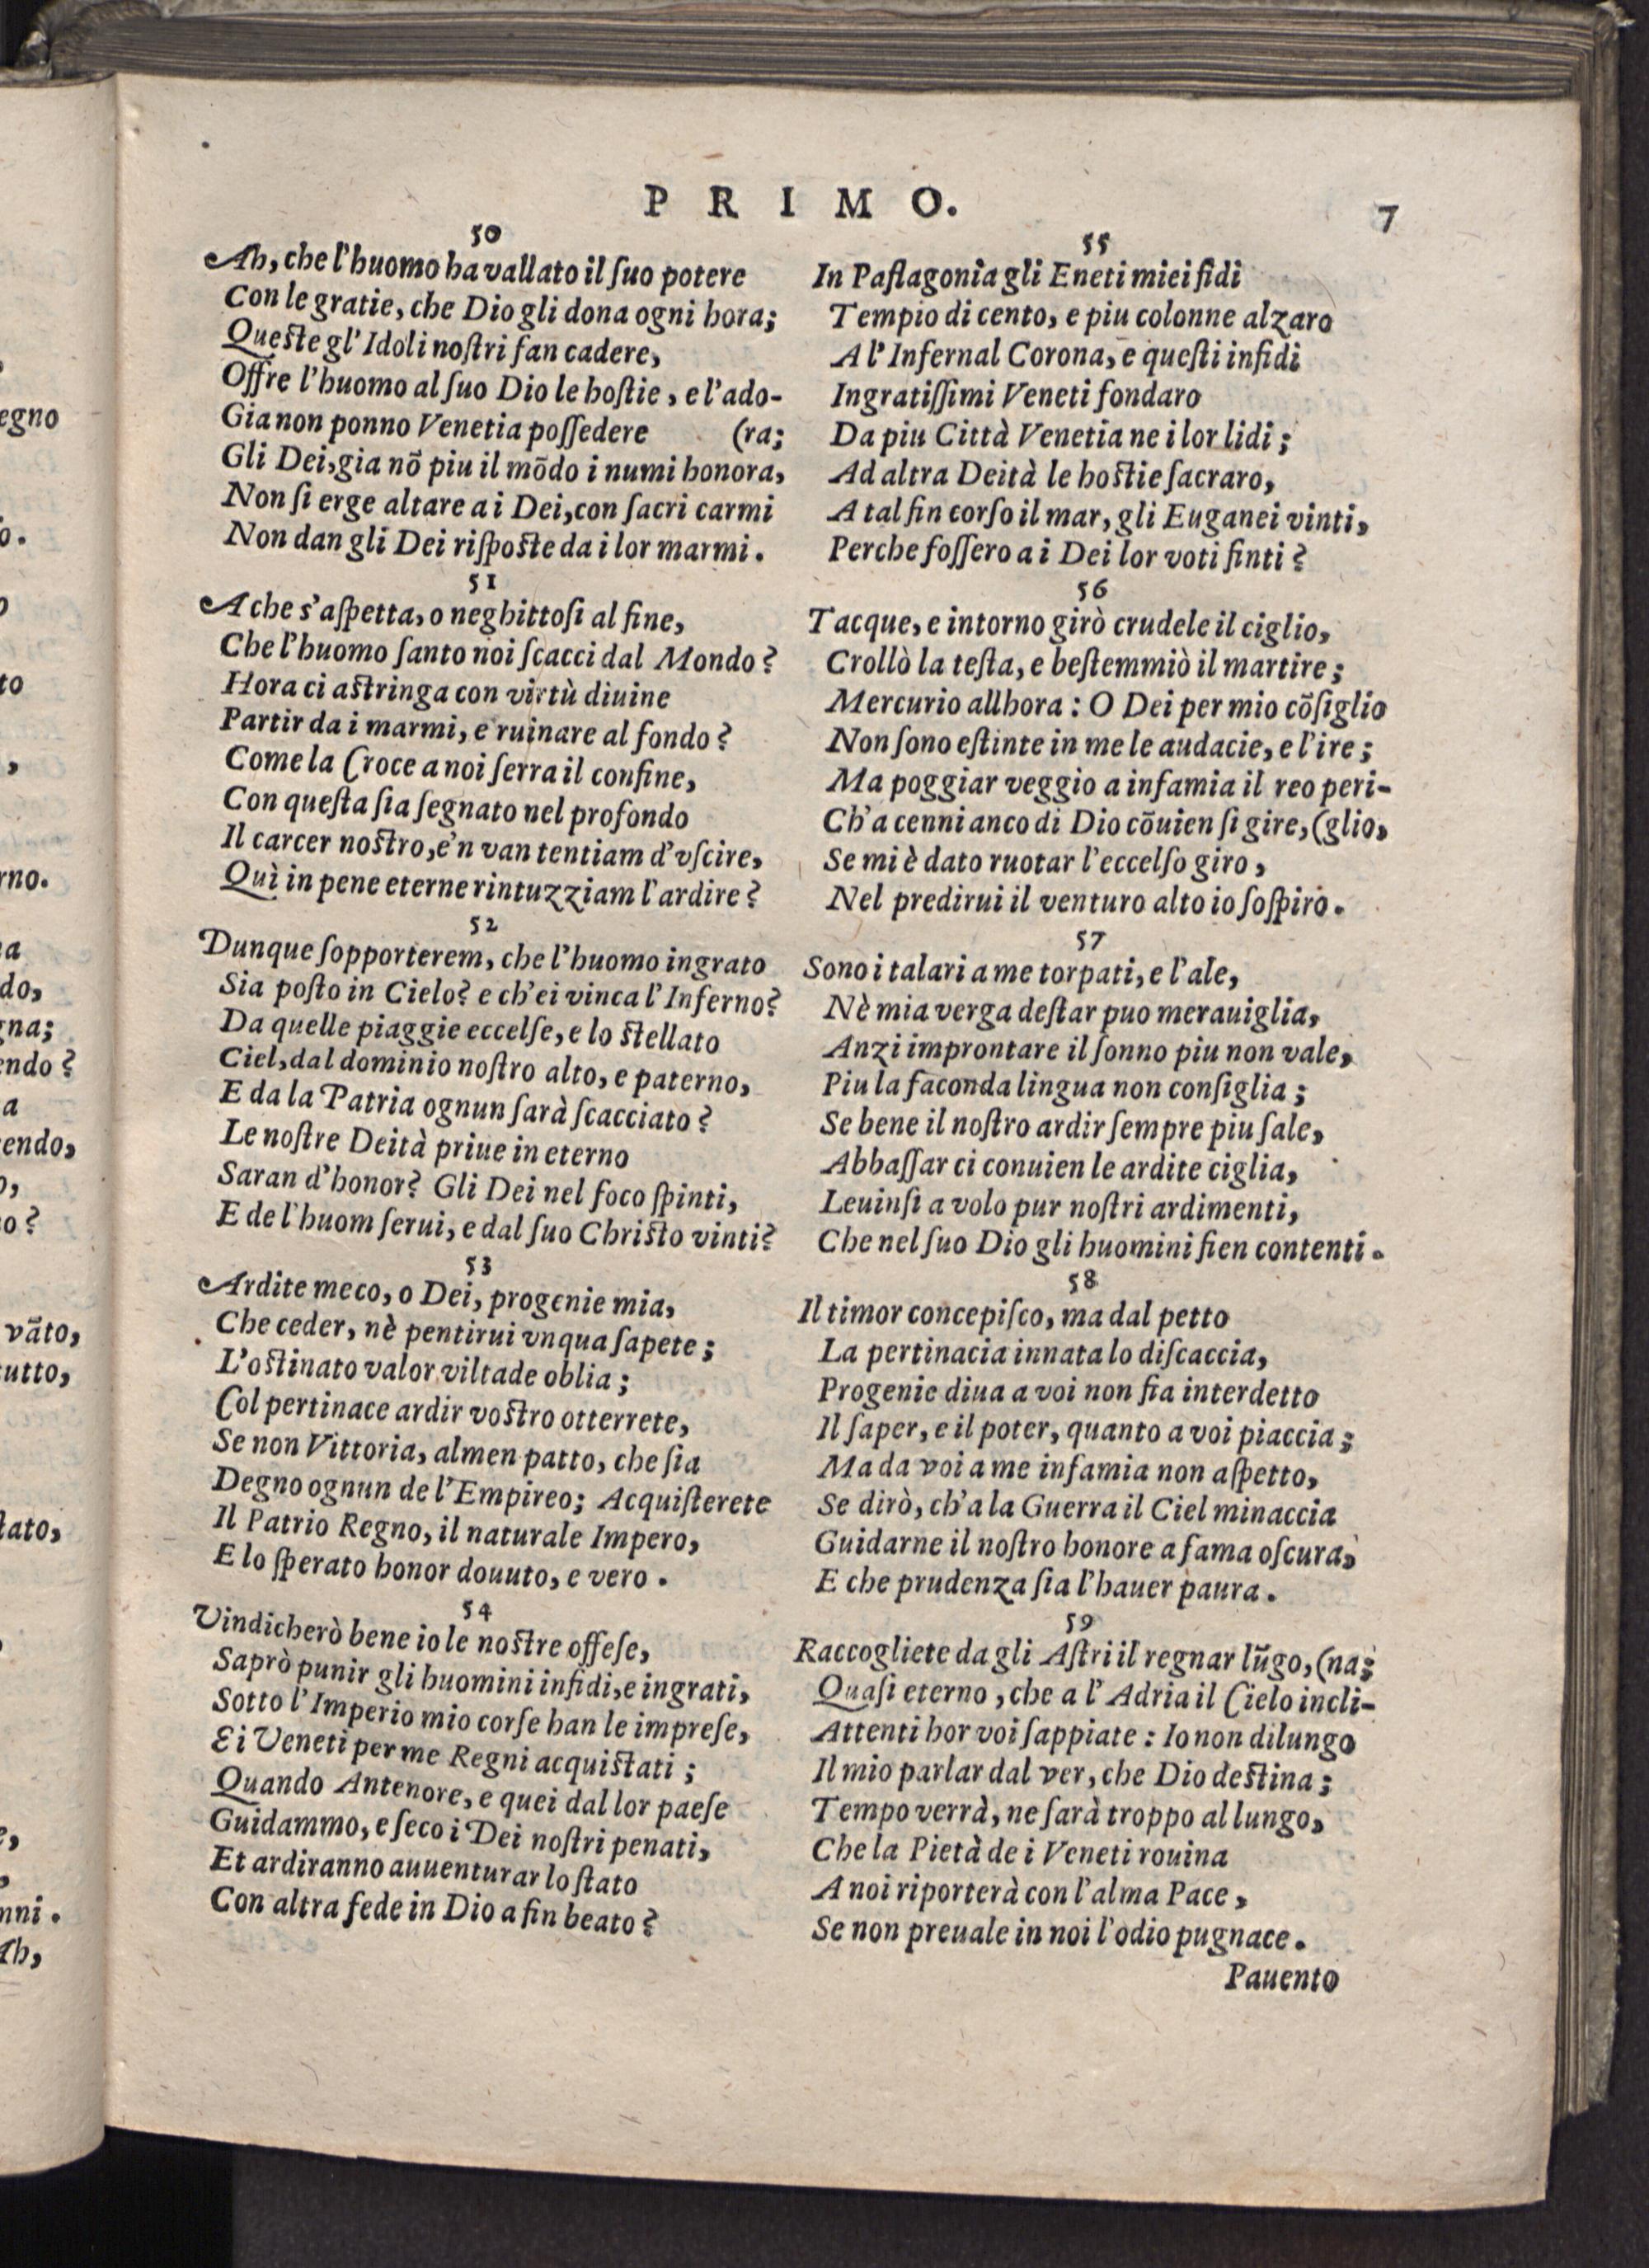 PRIMO.
7
50
Ah, che l'huomo ha vallato il ſuo potere
Con le gratie, che Dio gli dona ogni hora;
Queſte gl'Idoli noſtri fan cadere,
Offre l'huomo al ſuo Dio le hoſtie, e l'ado-
Gia non ponno Venetia poſſedere (ra;
Gli Dei, gia nō piu il mōdo i numi honora,
Non ſi erge altare a i Dei, con ſacri carmi
Non dan gli Dei riſpoſte da i lor marmi.
51
A che s'aſpetta, o neghittoſi al fine,
Che l'huomo ſanto noi ſcacci dal Mondo?
Hora ci aſtringa con virtù diuine
Partir da i marmi, e ruinare al fondo?
Come la Croce a noi ſerra il confine,
Con queſta ſia ſegnato nel profondo
Il carcer noſtro, e'n van tentiam d'vſcire,
Quì in pene eterne rintuzziam l'ardire?
52
Dunque ſopporterem, che l'huomo ingrato
Sia poſto in Cielo? e ch'ei vinca l'Inferno?
Da quelle piaggie eccelſe, e lo ſtellato
Ciel, dal dominio noſtro alto, e paterno,
E da la Patria ognun ſarà ſcacciato?
Le noſtre Deità priue in eterno
Saran d'honor? Gli Dei nel foco ſpinti,
E de l'huom ſerui, e dal ſuo Chriſto vinti?
53
Ardite meco, o Dei, progenie mia,
Che ceder, nè pentirui vnqua ſapete;
L'oſtinato valor viltade oblia;
Col pertinace ardir voſtro otterrete,
Se non Vittoria, almen patto, che ſia
Degno ognun de l'Empireo; Acquiſterete
Il Patrio Regno, il naturale Impero,
E lo ſperato honor douuto, e vero.
54
Vindicherò bene io le noſtre offeſe,
Saprò punir gli huomini infidi, e ingrati,
Sotto l'Imperio mio corſe han le impreſe,
E i Veneti per me Regni acquiſtati;
Quando Antenore, e quei dal lor paeſe
Guidammo, e ſeco i Dei noſtri penati,
Et ardiranno auuenturar lo ſtato
Con altra fede in Dio a fin beato?
55
In Paflagonia gli Eneti miei fidi
Tempio di cento, e piu colonne alzaro
A l'Infernal Corona, e queſti infidi
Ingratiſſimi Veneti fondaro
Da piu Città Venetia ne i lor lidi;
Ad altra Deità le hoſtie ſacraro,
A tal fin corſo il mar, gli Euganei vinti,
Perche foſſero a i Dei lor voti finti?
56
Tacque, e intorno girò crudele il ciglio,
Crollò la teſta, e beſtemmiò il martire;
Mercurio allhora: O Dei per mio cōſiglio
Non ſono eſtinte in me le audacie, e l'ire;
Ma poggiar veggio a infamia il reo peri-
Ch'a cenni anco di Dio cōuien ſi gire, (glio,
Se mi è dato ruotar l'eccelſo giro,
Nel predirui il venturo alto io ſoſpiro.
57
Sono i talari a me torpati, e l'ale,
Nè mia verga deſtar puo merauiglia,
Anzi improntare il ſonno piu non vale,
Piu la faconda lingua non conſiglia;
Se bene il noſtro ardir ſempre piu ſale,
Abbaſſar ci conuien le ardite ciglia,
Leuinſi a volo pur noſtri ardimenti,
Che nel ſuo Dio gli huomini fien contenti.
58
Il timor concepiſco, ma dal petto
La pertinacia innata lo diſcaccia,
Progenie diua a voi non fia interdetto
Il ſaper, e il poter, quanto a voi piaccia;
Ma da voi a me infamia non aſpetto,
Se dirò, ch'a la Guerra il Ciel minaccia
Guidarne il noſtro honore a fama oſcura,
E che prudenza ſia l'hauer paura.
59
Raccogliete da gli Aſtri il regnar lūgo, (na;
Quaſi eterno, che a l'Adria il Cielo incli-
Attenti hor voi ſappiate: Io non dilungo
Il mio parlar dal ver, che Dio deſtina;
Tempo verrà, ne ſarà troppo al lungo,
Che la Pietà de i Veneti rouina
A noi riporterà con l'alma Pace,
Se non preuale in noi l'odio pugnace.
Pauento